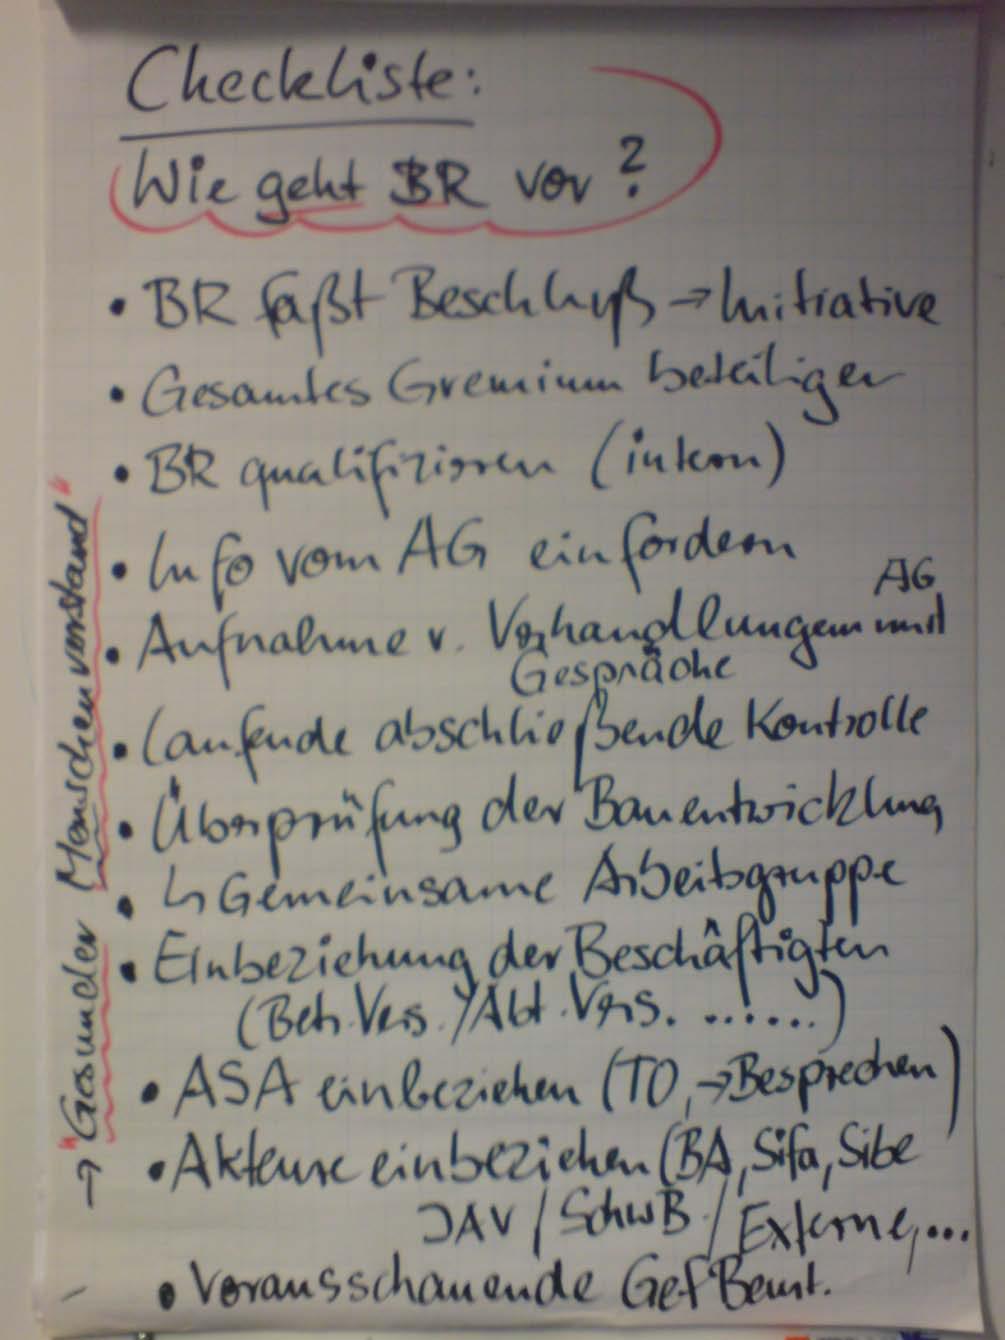 Checkliste:
Wie geht BR vor?
• BR faßt Beschluß → Initiative
• Gesamtes Gremium beteiligen
• BR qualifizieren (intern)
• Info vom AG einfordern
AG
• Aufnahme v. Verhandlungen und
Gespräche
• Laufende abschließende Kontrolle
• Überprüfung der Bauentwicklung
• ↳ Gemeinsame Arbeitsgruppe
• Einbeziehung der Beschäftigten
(Betr.Vers./Abt.Vers. ......)
• ASA einbeziehen (TO, → Besprechen)
• Akteure einbeziehen (BA, Sifa, Sibe
JAV / SchwB. / Externe, ...
• Vorausschauende GefBeurt.
→ "Gesunder Menschenverstand"